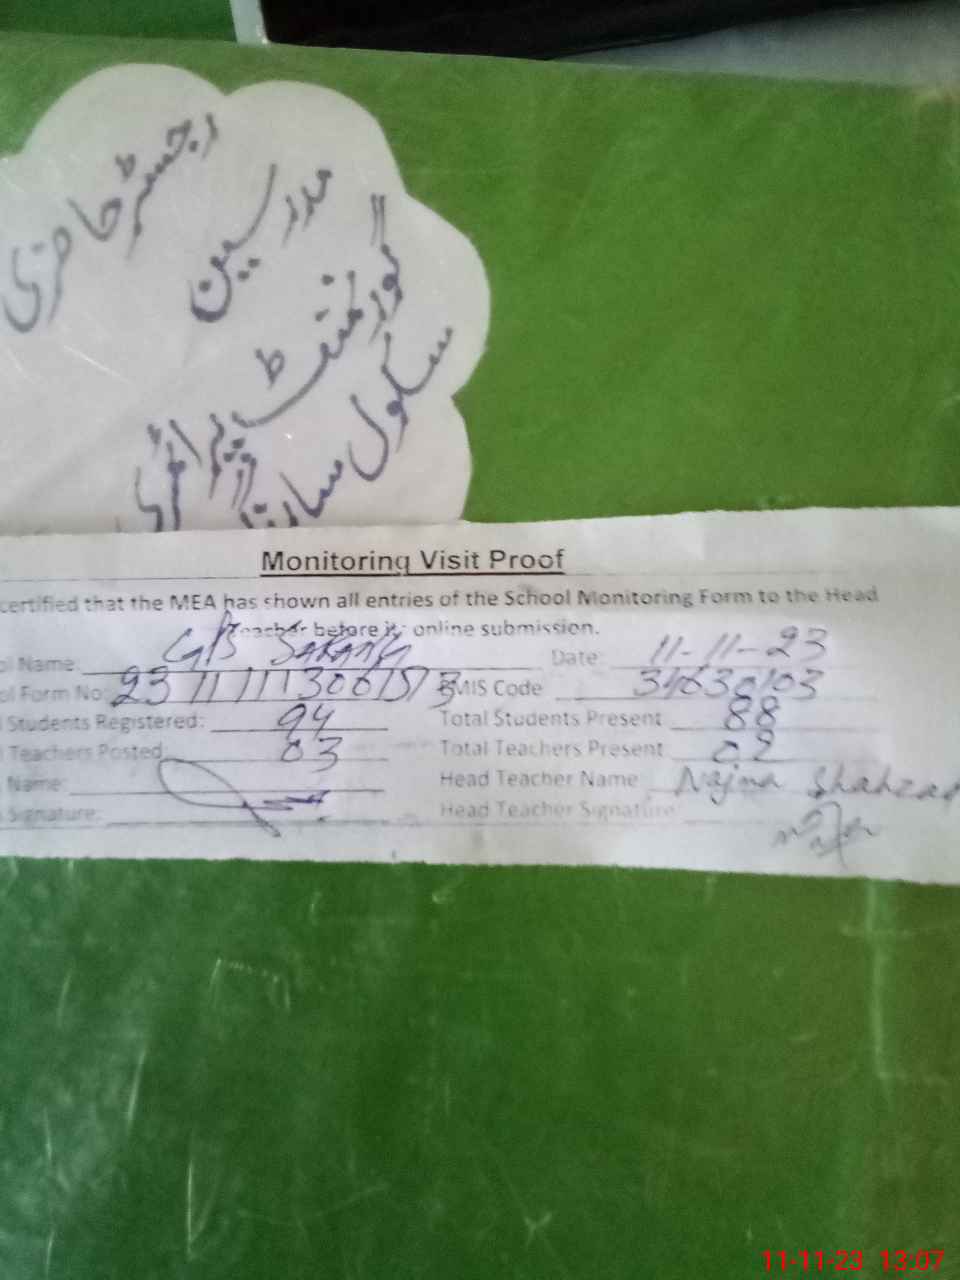 رجسٹر حاضری
مدرسین
گورنمنٹ پرائمری
سکول
Monitoring Visit Proof
certified that the MEA has shown all entries of the School Monitoring Form to the Head
Teacher before its online submission.
ol Name: G/S SARANG Date: 11-11-23
ol Form No: EMIS Code 34630103
Students Registered: 94 Total Students Present 88
Teachers Posted 03 Total Teachers Present 02
Name: Head Teacher Name Najma Shahzad
Signature: Head Teacher Signature:
11-11-23 13:07